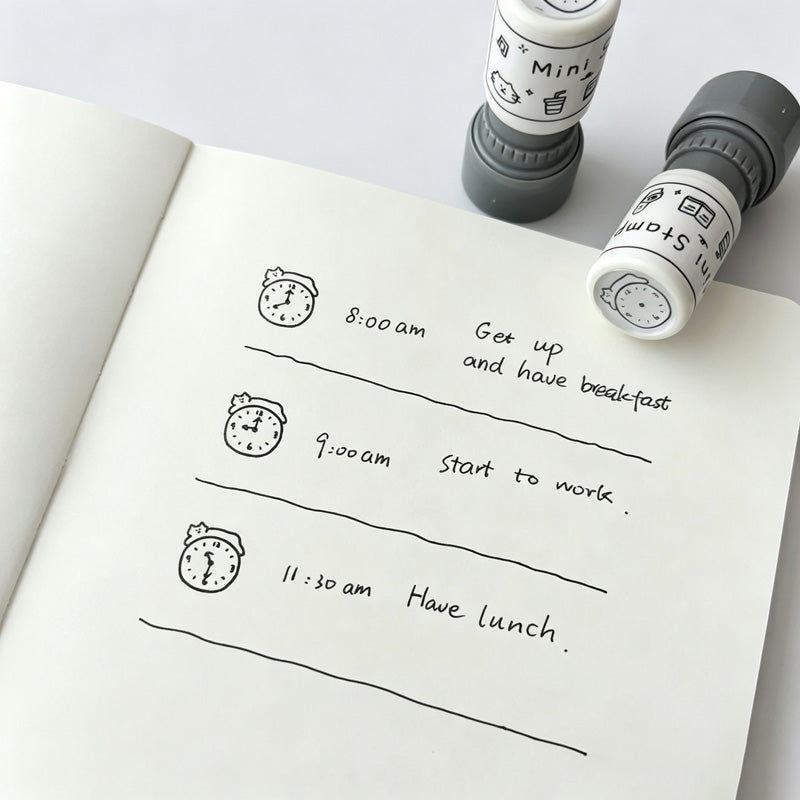 Mini S
Mini Stamp
12
6
8:00 am
Get up
and have breakfast
12
9
6
9:00 am
Start to work.
12
6
11:30 am
Have lunch.